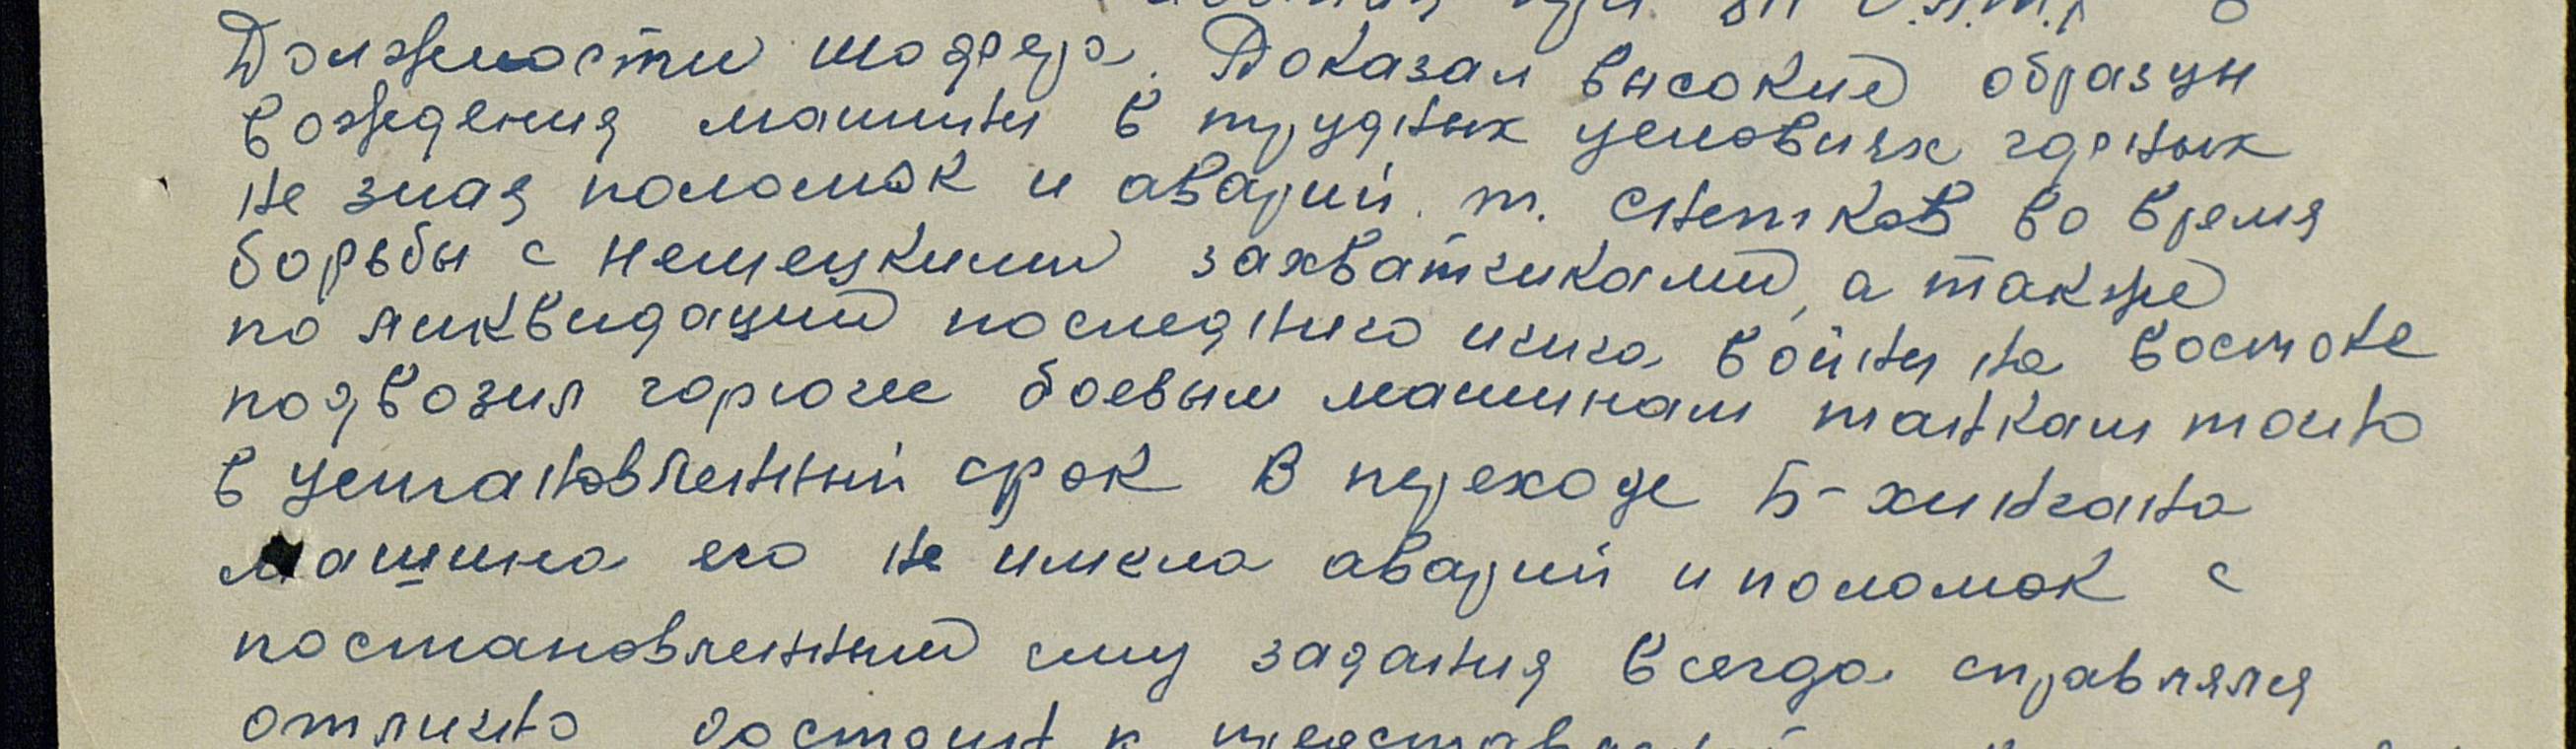 Должности шофера. Показал высокие образцы
вождения машины в трудных условиях горных
не зная поломок и аварий. т. Снетков во время
борьбы с немецкими захватчиками, а также
по ликвидаций последнего очага войны на востоке
подвозил горючее боевым машинам танкам точно
в установленный срок В переходе Б-хингана
машина его не имела аварий и поломок с
постановленный ему задания всегда справлялся
отлично достоин к